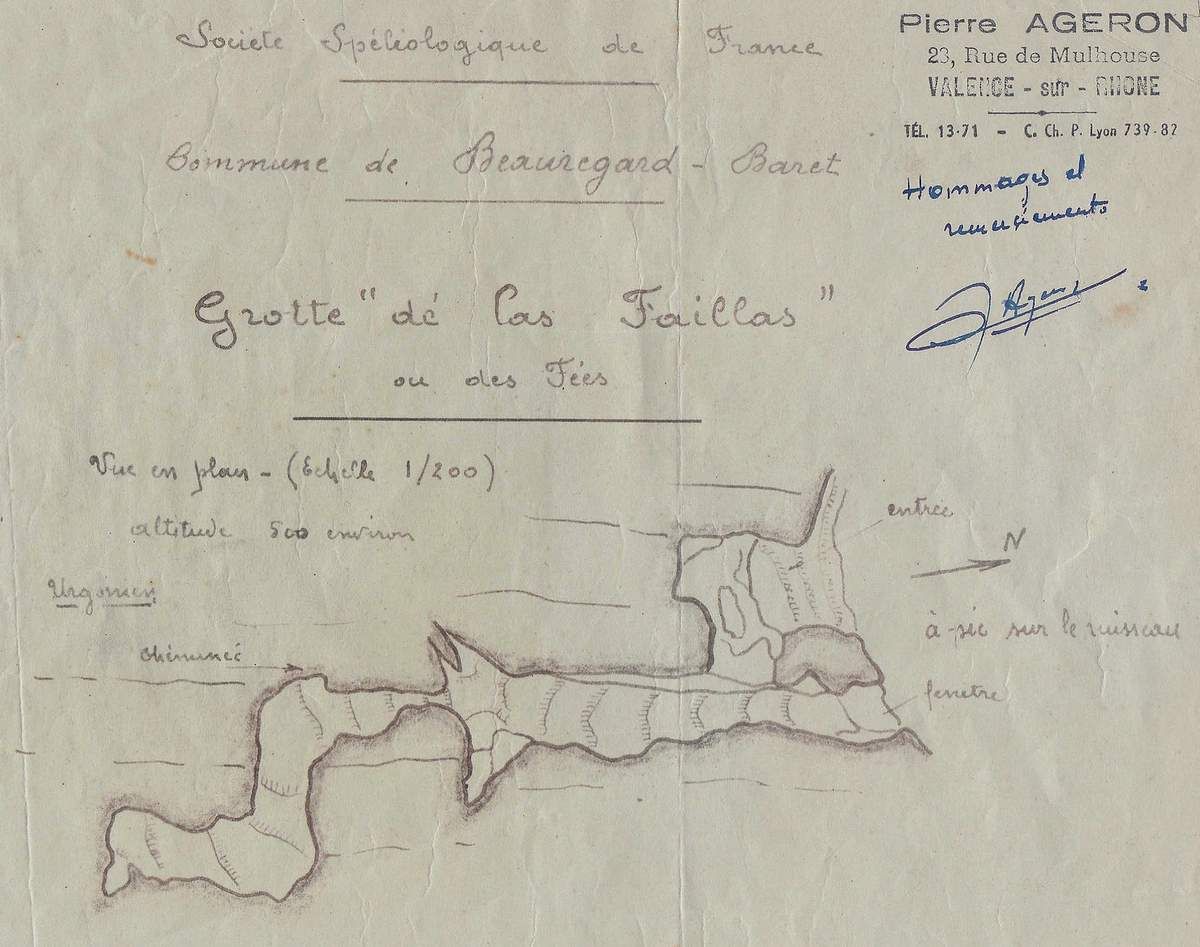 Société Spéléologique de France
Commune de Beauregard - Baret
Grotte "dé las Faillas"
ou des Fées
Vue en plan - (Echelle 1/200)
altitude 500 environ
Urgonien
cheminée
entrée
N
à-pic sur le ruisseau
fenêtre
Pierre AGERON
23, Rue de Mulhouse
VALENCE - sur - RHONE
TÉL. 13-71 - C. Ch. P. Lyon 739-82
Hommages et
remerciements
Ageron